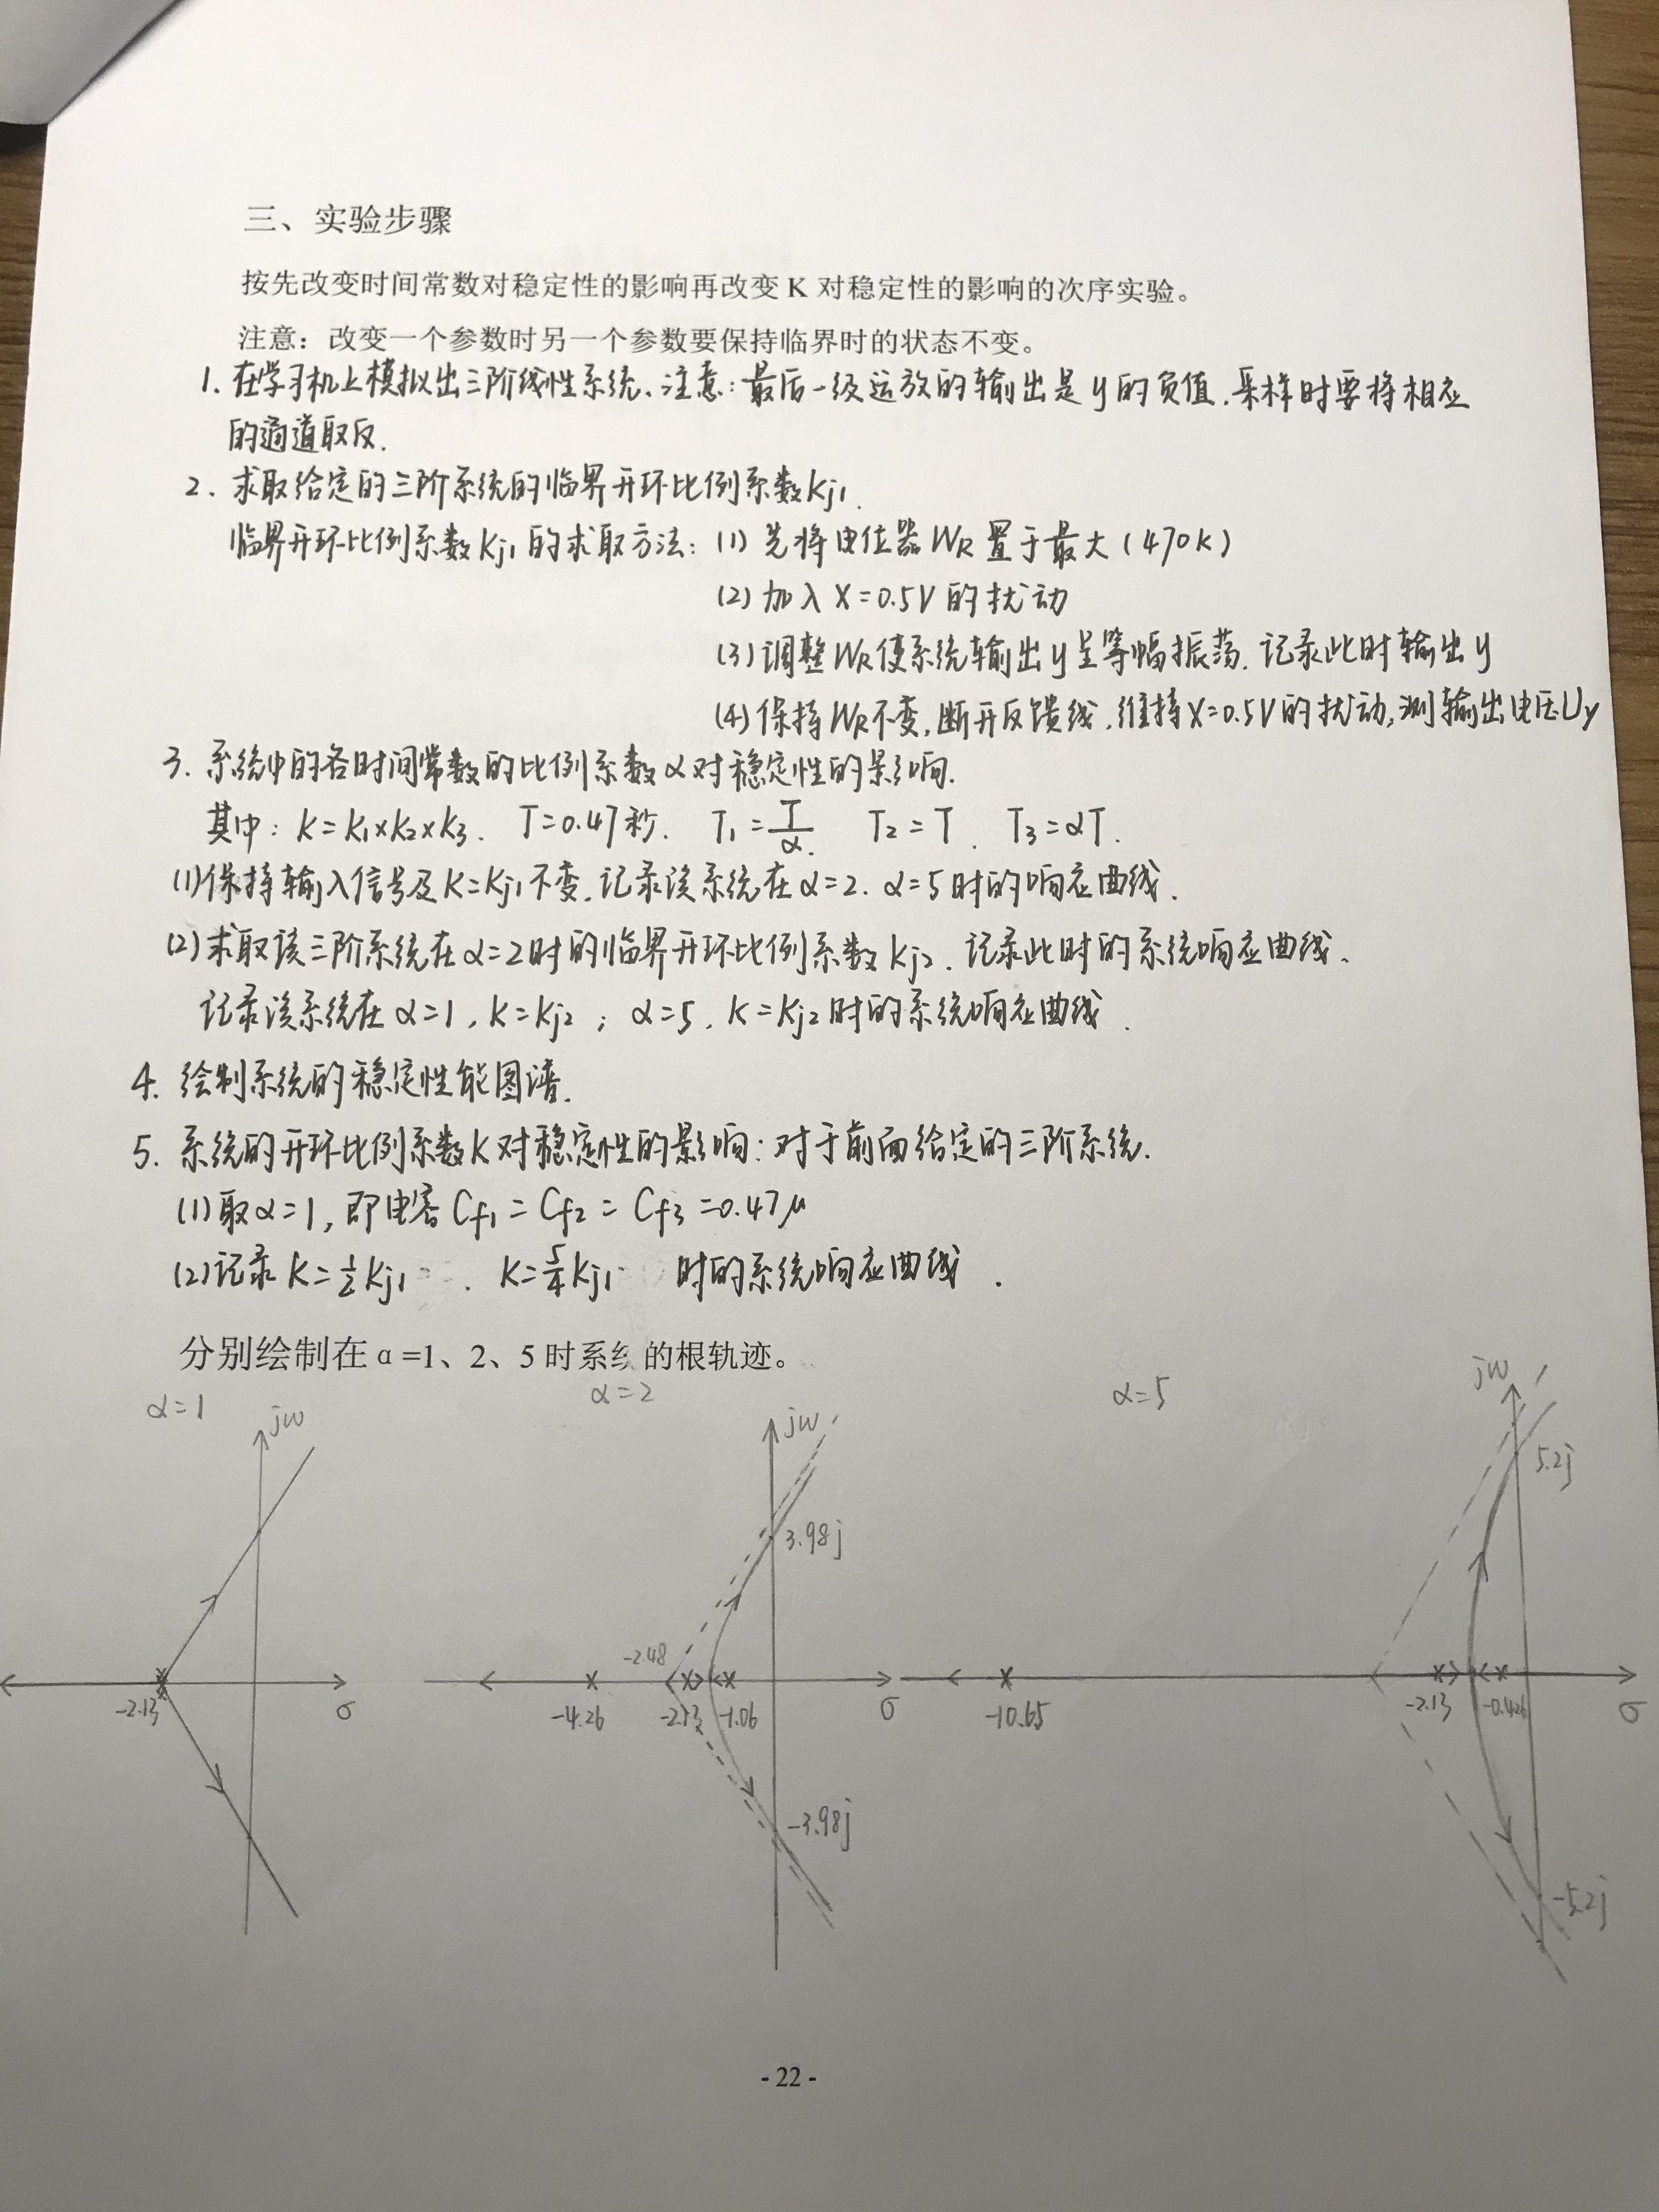 三、实验步骤
按先改变时间常数对稳定性的影响再改变 K 对稳定性的影响的次序实验。
注意：改变一个参数时另一个参数要保持临界时的状态不变。
1. 在学习机上模拟出三阶线性系统、注意：最后一级运放的输出是y的负值.采样时要将相应
的通道取反.
2. 求取给定的三阶系统的临界开环比例系数Kj1.
临界开环比例系数Kj1的求取方法：(1) 先将电位器WR置于最大(470K)
(2) 加入X=0.5V的扰动
(3) 调整WR使系统输出y呈等幅振荡.记录此时输出y
(4) 保持WR不变,断开反馈线,维持X=0.5V的扰动,测输出电压Uy
3. 系统中的各时间常数的比例系数α对稳定性的影响.
其中：K=K1×K2×K3. T=0.47秒. T1=T/α. T2=T. T3=αT.
(1)保持输入信号及K=Kj1不变.记录该系统在α=2. α=5时的响应曲线.
(2)求取该三阶系统在α=2时的临界开环比例系数Kj2.记录此时的系统响应曲线、
记录该系统在α=1,K=Kj2；α=5,K=Kj2时的系统响应曲线.
4. 绘制系统的稳定性能图谱.
5. 系统的开环比例系数K对稳定性的影响：对于前面给定的三阶系统.
(1)取α=1,即电容Cf1=Cf2=Cf3=0.47μ
(2)记录K=1/2Kj1、K=5/4Kj1 时的系统响应曲线.
分别绘制在α=1、2、5 时系统的根轨迹。
α=1
jω
-2.13
σ
α=2
jω
3.98j
-2.48
-4.26
-2.13
-1.06
σ
-3.98j
α=5
jω
5.2j
-10.65
-2.13
-0.426
σ
-5.2j
- 22 -